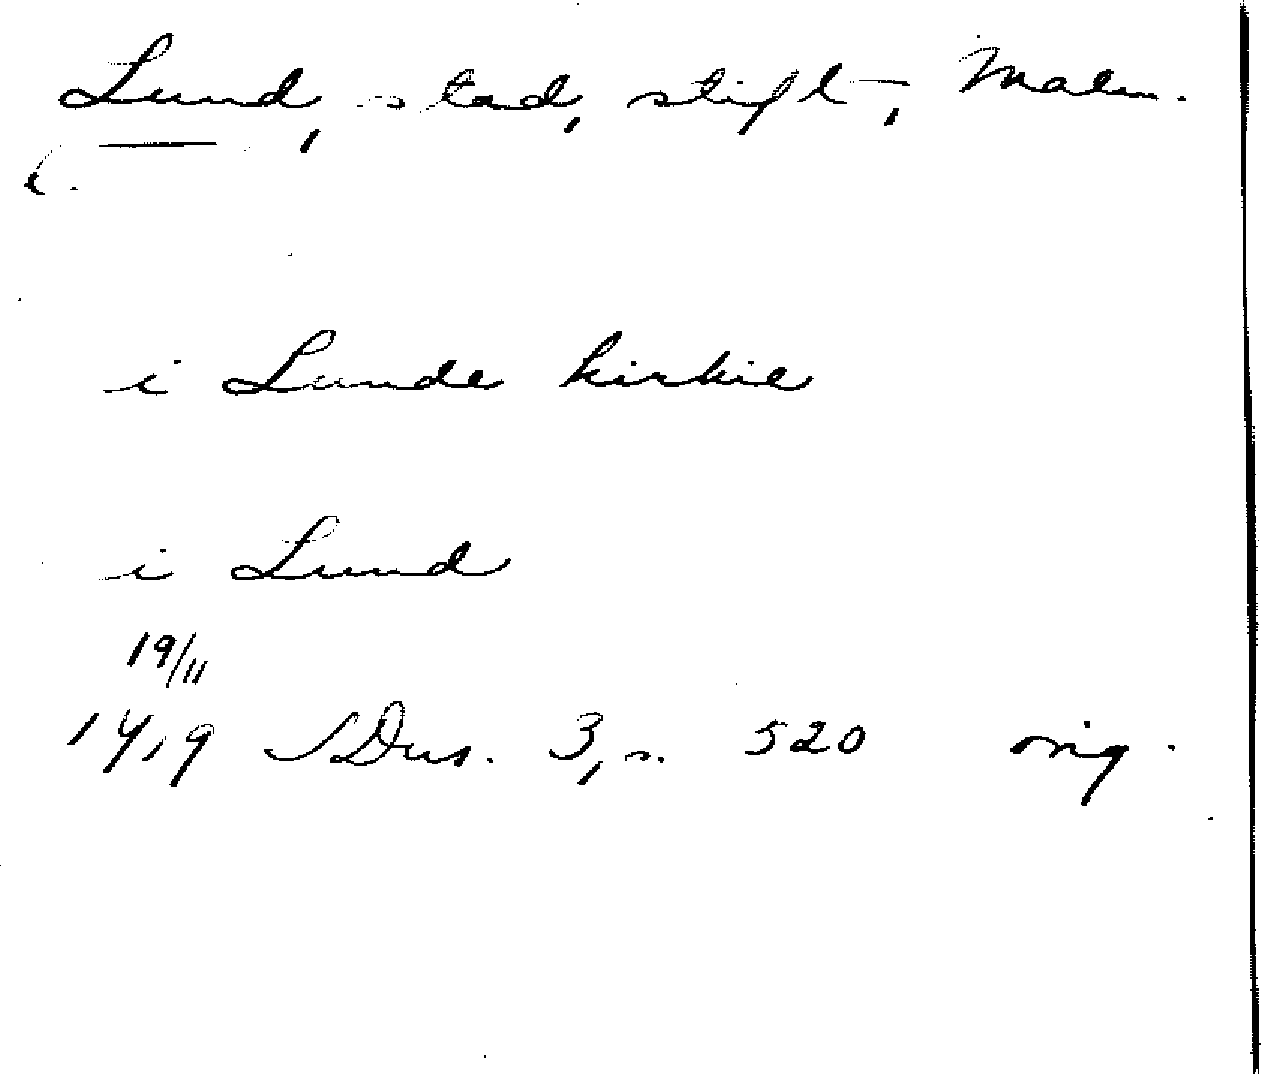 Lund, stad, stift, Malm.
i Lunde kirkie
i Lund
19/11
1419 SDns. 3, s. 520 orig.